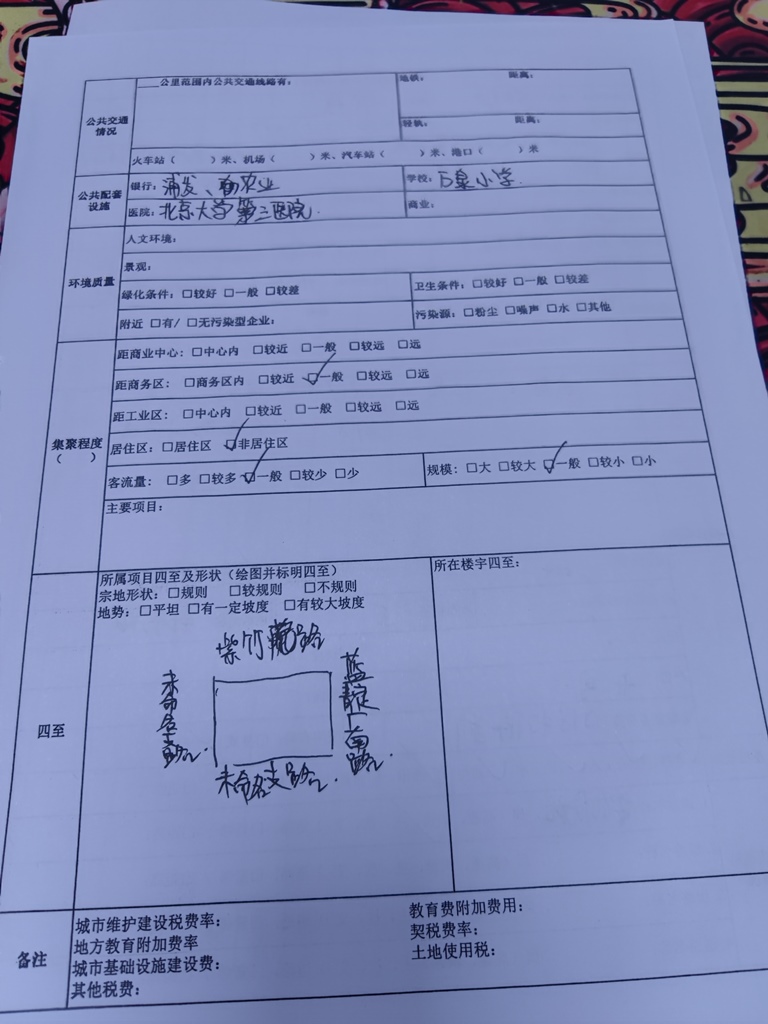 公共交通情况
___公里范围内公共交通线路有：
地铁： 距离：
轻轨： 距离：
火车站（ ）米、机场（ ）米、汽车站（ ）米、港口（ ）米
公共配套设施
银行：浦发、农业
学校：万泉小学
医院：北京大学第三医院
商业：
环境质量
人文环境：
景观：
绿化条件：□较好 □一般 □较差
卫生条件：□较好 □一般 □较差
附近 □有/ □无污染型企业：
污染源：□粉尘 □噪声 □水 □其他
集聚程度
（ ）
距商业中心：□中心内 □较近 □一般 □较远 □远
距商务区：□商务区内 □较近 ☑一般 □较远 □远
距工业区：□中心内 □较近 □一般 □较远 □远
居住区：□居住区 ☑非居住区
客流量：□多 □较多 ☑一般 □较少 □少
规模：□大 □较大 ☑一般 □较小 □小
主要项目：
四至
所属项目四至及形状（绘图并标明四至）
宗地形状：□规则 □较规则 □不规则
地势：□平坦 □有一定坡度 □有较大坡度
所在楼宇四至：
紫竹路
未命名支路
蓝靛厂南路
未命名支路
备注
城市维护建设税费率：
教育费附加费用：
地方教育附加费率
契税费率：
城市基础设施建设费：
土地使用税：
其他税费：